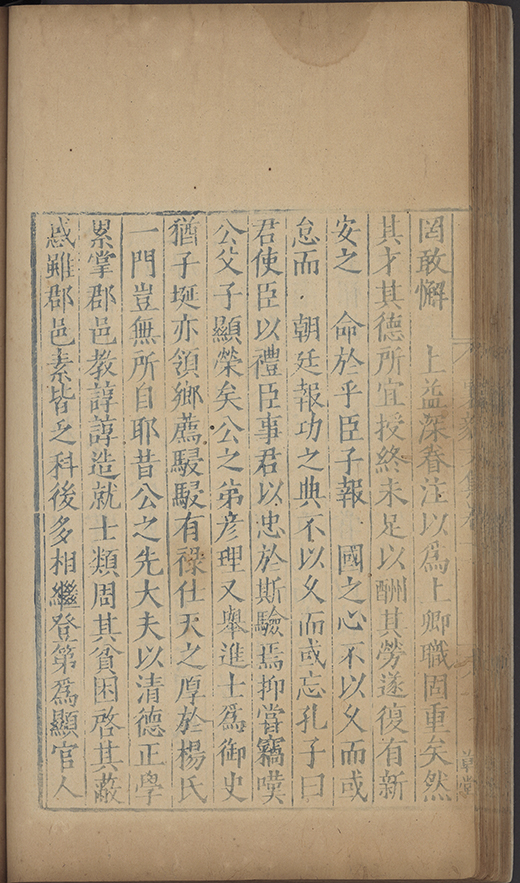 罔敢懈　上益深眷注以爲上卿職固重矣然
其才其德所宜授終未足以酬其勞遂復有新
安之　命於乎臣子報　國之心不以久而或
怠而　朝廷報功之典不以久而或忘孔子曰
君使臣以禮臣事君以忠於斯驗焉抑嘗竊嘆
公父子顯榮矣公之弟彦理又舉進士爲御史
猶子埏亦領鄉薦駸駸有祿仕天之厚於楊氏
一門豈無所自耶昔公之先大夫以清德正學
累掌郡邑教諄諄造就士類周其貧困啓其蔽
惑雖郡邑素皆乏科後多相繼登第爲顯官人